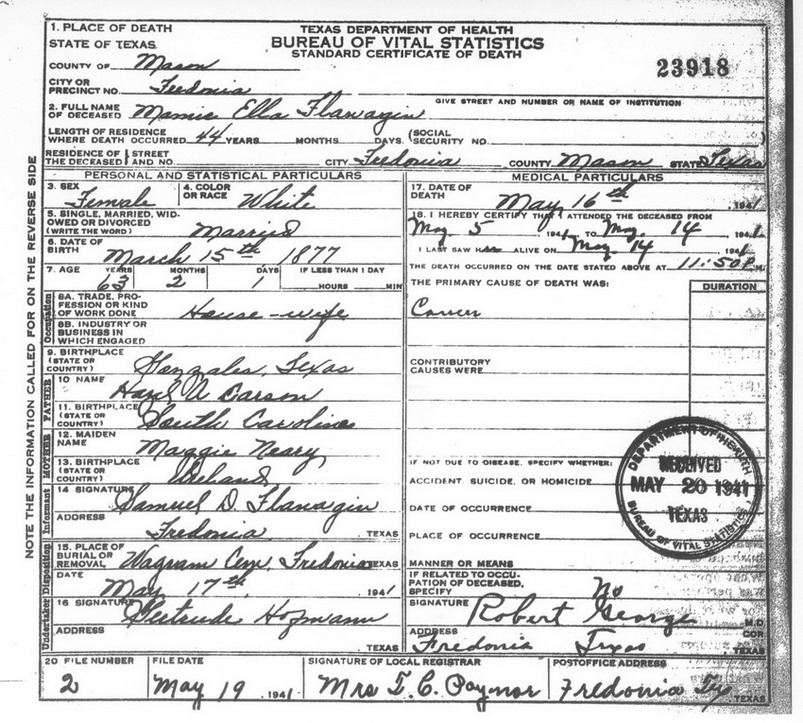 TEXAS DEPARTMENT OF HEALTH
BUREAU OF VITAL STATISTICS
STANDARD CERTIFICATE OF DEATH
23918
NOTE THE INFORMATION CALLED FOR ON THE REVERSE SIDE
1. PLACE OF DEATH
STATE OF TEXAS
COUNTY OF Mason
CITY OR
PRECINCT NO. Fredonia
GIVE STREET AND NUMBER OR NAME OF INSTITUTION
2. FULL NAME
OF DECEASED Mamie Ella Flanagin
LENGTH OF RESIDENCE
WHERE DEATH OCCURRED 44 YEARS MONTHS DAYS (SOCIAL
SECURITY NO.
RESIDENCE OF STREET
THE DECEASED AND NO. CITY Fredonia COUNTY Mason STATE Texas
PERSONAL AND STATISTICAL PARTICULARS
3. SEX
Female
4. COLOR
OR RACE White
5. SINGLE, MARRIED, WID-
OWED OR DIVORCED
(WRITE THE WORD) Married
6. DATE OF
BIRTH March 15th 1877
7. AGE YEARS MONTHS DAYS IF LESS THAN 1 DAY
63 2 1 HOURS MIN
Occupation
8A. TRADE, PRO-
FESSION OR KIND
OF WORK DONE House-wife
8B. INDUSTRY OR
BUSINESS IN
WHICH ENGAGED
9. BIRTHPLACE
(STATE OR
COUNTRY) Gonzales, Texas
FATHER
10 NAME
A Carson
11. BIRTHPLACE
(STATE OR
COUNTRY) South Carolina
MOTHER
12. MAIDEN
NAME Maggie Neary
13. BIRTHPLACE
(STATE OR
COUNTRY) Ireland
Informant
14 SIGNATURE Samuel D. Flanagin
ADDRESS
Fredonia TEXAS
Disposition
15. PLACE OF
BURIAL OR
REMOVAL Wagram Cem, Fredonia TEXAS
DATE
May 17th 1941
Undertaker
16 SIGNATURE Gertrude Hofmann
ADDRESS
TEXAS
MEDICAL PARTICULARS
17. DATE OF
DEATH May 16th, 1941
18. I HEREBY CERTIFY THAT I ATTENDED THE DECEASED FROM
May. 5 1941 TO May. 14 1941.
I LAST SAW her ALIVE ON May 14 1941
THE DEATH OCCURRED ON THE DATE STATED ABOVE AT 11:50 P.M.
THE PRIMARY CAUSE OF DEATH WAS: DURATION
Cancer
CONTRIBUTORY
CAUSES WERE
IF NOT DUE TO DISEASE, SPECIFY WHETHER:
ACCIDENT, SUICIDE, OR HOMICIDE
DATE OF OCCURRENCE
PLACE OF OCCURRENCE
MANNER OR MEANS
IF RELATED TO OCCU-
PATION OF DECEASED,
SPECIFY No
SIGNATURE Robert George M.D
COR
ADDRESS
Fredonia Texas TEXAS
DEPARTMENT OF HEALTH
RECEIVED
MAY 20 1941
TEXAS
BUREAU OF VITAL STATISTICS
20 FILE NUMBER FILE DATE SIGNATURE OF LOCAL REGISTRAR POSTOFFICE ADDRESS
2 May 19, 1941 Mrs T. C. Paynor Fredonia Tx TEXAS